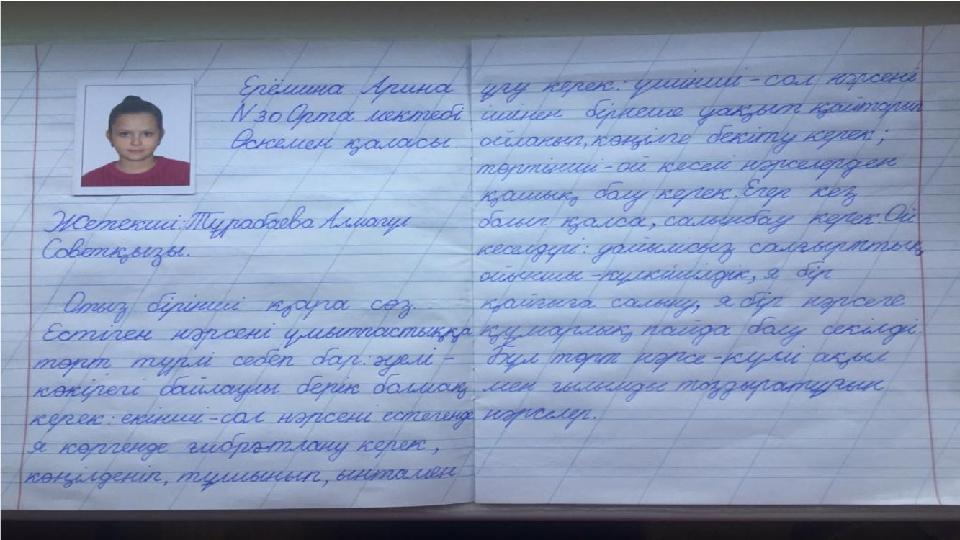 Ерёмина Арина
N 30 Орта мектебі
Өскемен қаласы
Жетекші: Турабаева Алмагул
Советқызы.
Отыз бірінші қара сөз.
Естіген нәрсені ұмытпастыққа
төрт түрлі себеп бар: әуелі -
көкірегі байлаулы берік болмақ
керек: екінші - сол нәрсені естігенде
я көргенде ғибрәтлану керек,
көңілденіп, тұшынып, ынтамен
ұғу керек: үшінші - сол нәрсені
ішінен бірнеше уақыт қайтарып
ойланып, көңілге бекіту керек;
төртінші - ой кеселі нәрселерден
қашық болу керек. Егер кез
болып қалса, салынбау керек. Ой
кеселдері: уайымсыз салғырттық,
ойыншы - күлкішілдік, я бір
қайғыға салыну, я бір нәрсеге
құмарлық пайда болу секілді
Бұл төрт нәрсе - күллі ақыл
мен ғылымды тоздыратұғын
нәрселер.